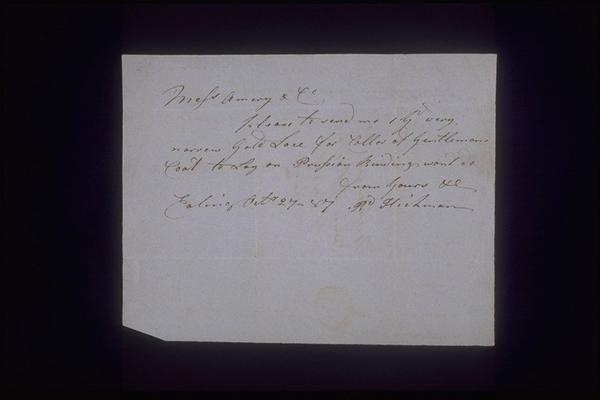 Messrs Amery & Co
Please to send me 1 yd very
narrow Gold Lace for Coller of Gentlemans
Coat to Lay on Prussian Binding want
from Yours &c
Ealing Octr 27 Hickman